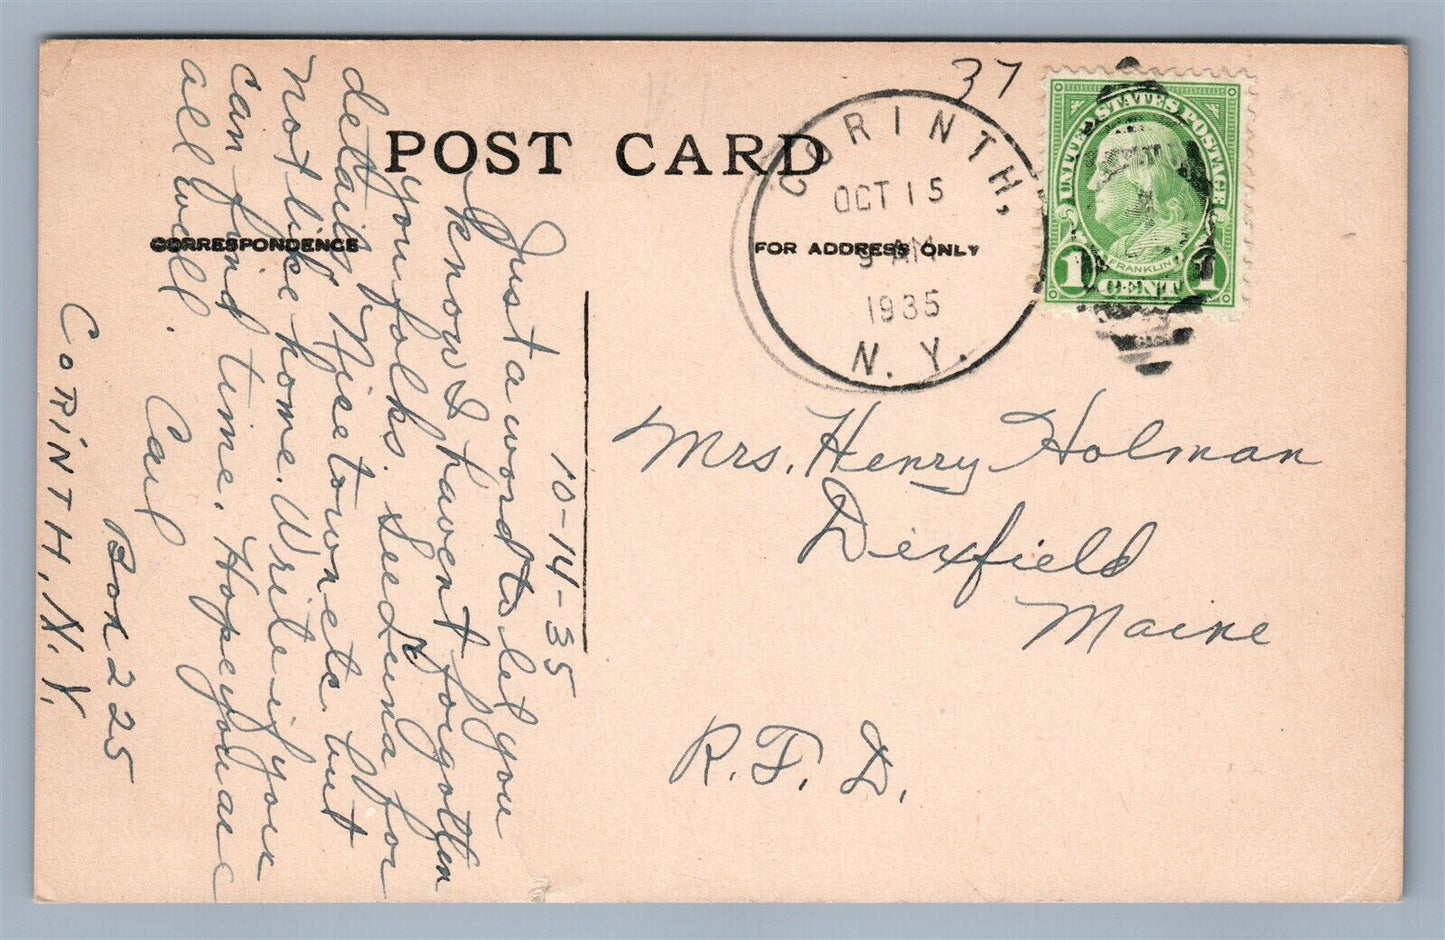 POST CARD
CORRESPONDENCE
FOR ADDRESS ONLY
37
CORINTH,
OCT 15
9 AM
1935
N. Y.
UNITED STATES POSTAGE
FRANKLIN
1 CENT 1
10-14-35
Just a word to let you
know I havent forgotten
you folks. See Luna for
details, Nice town etc but
not like home. Write if you
can find time. Hope you are
all well.
Box 225
CORINTH, N.Y.
Mrs. Henry Holman
Dixfield
Maine
R. F. D.